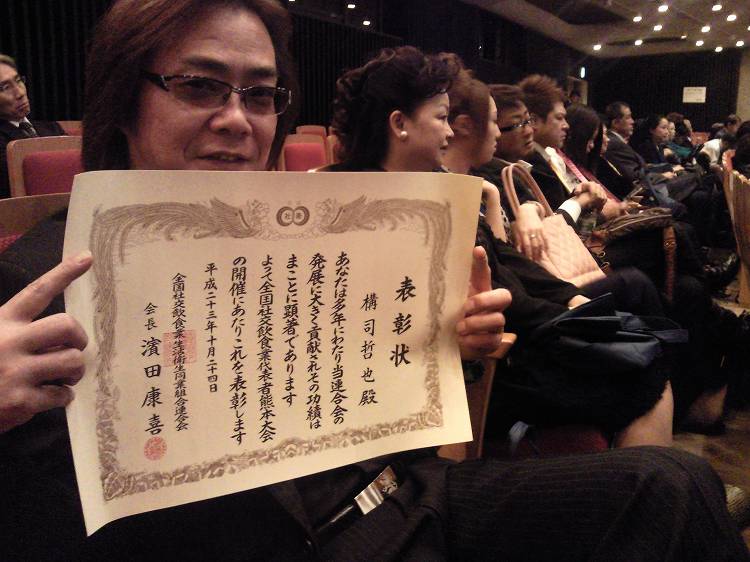 表彰状
構司哲也殿
あなたは多年にわたり当連合会の
発展に大きく貢献されその功績は
まことに顕著であります
よって全国社交飲食業代表者熊本大会
の開催にあたりこれを表彰します
平成二十三年十月二十四日
全国社交飲食業生活衛生同業組合連合会
会長 濱田康喜